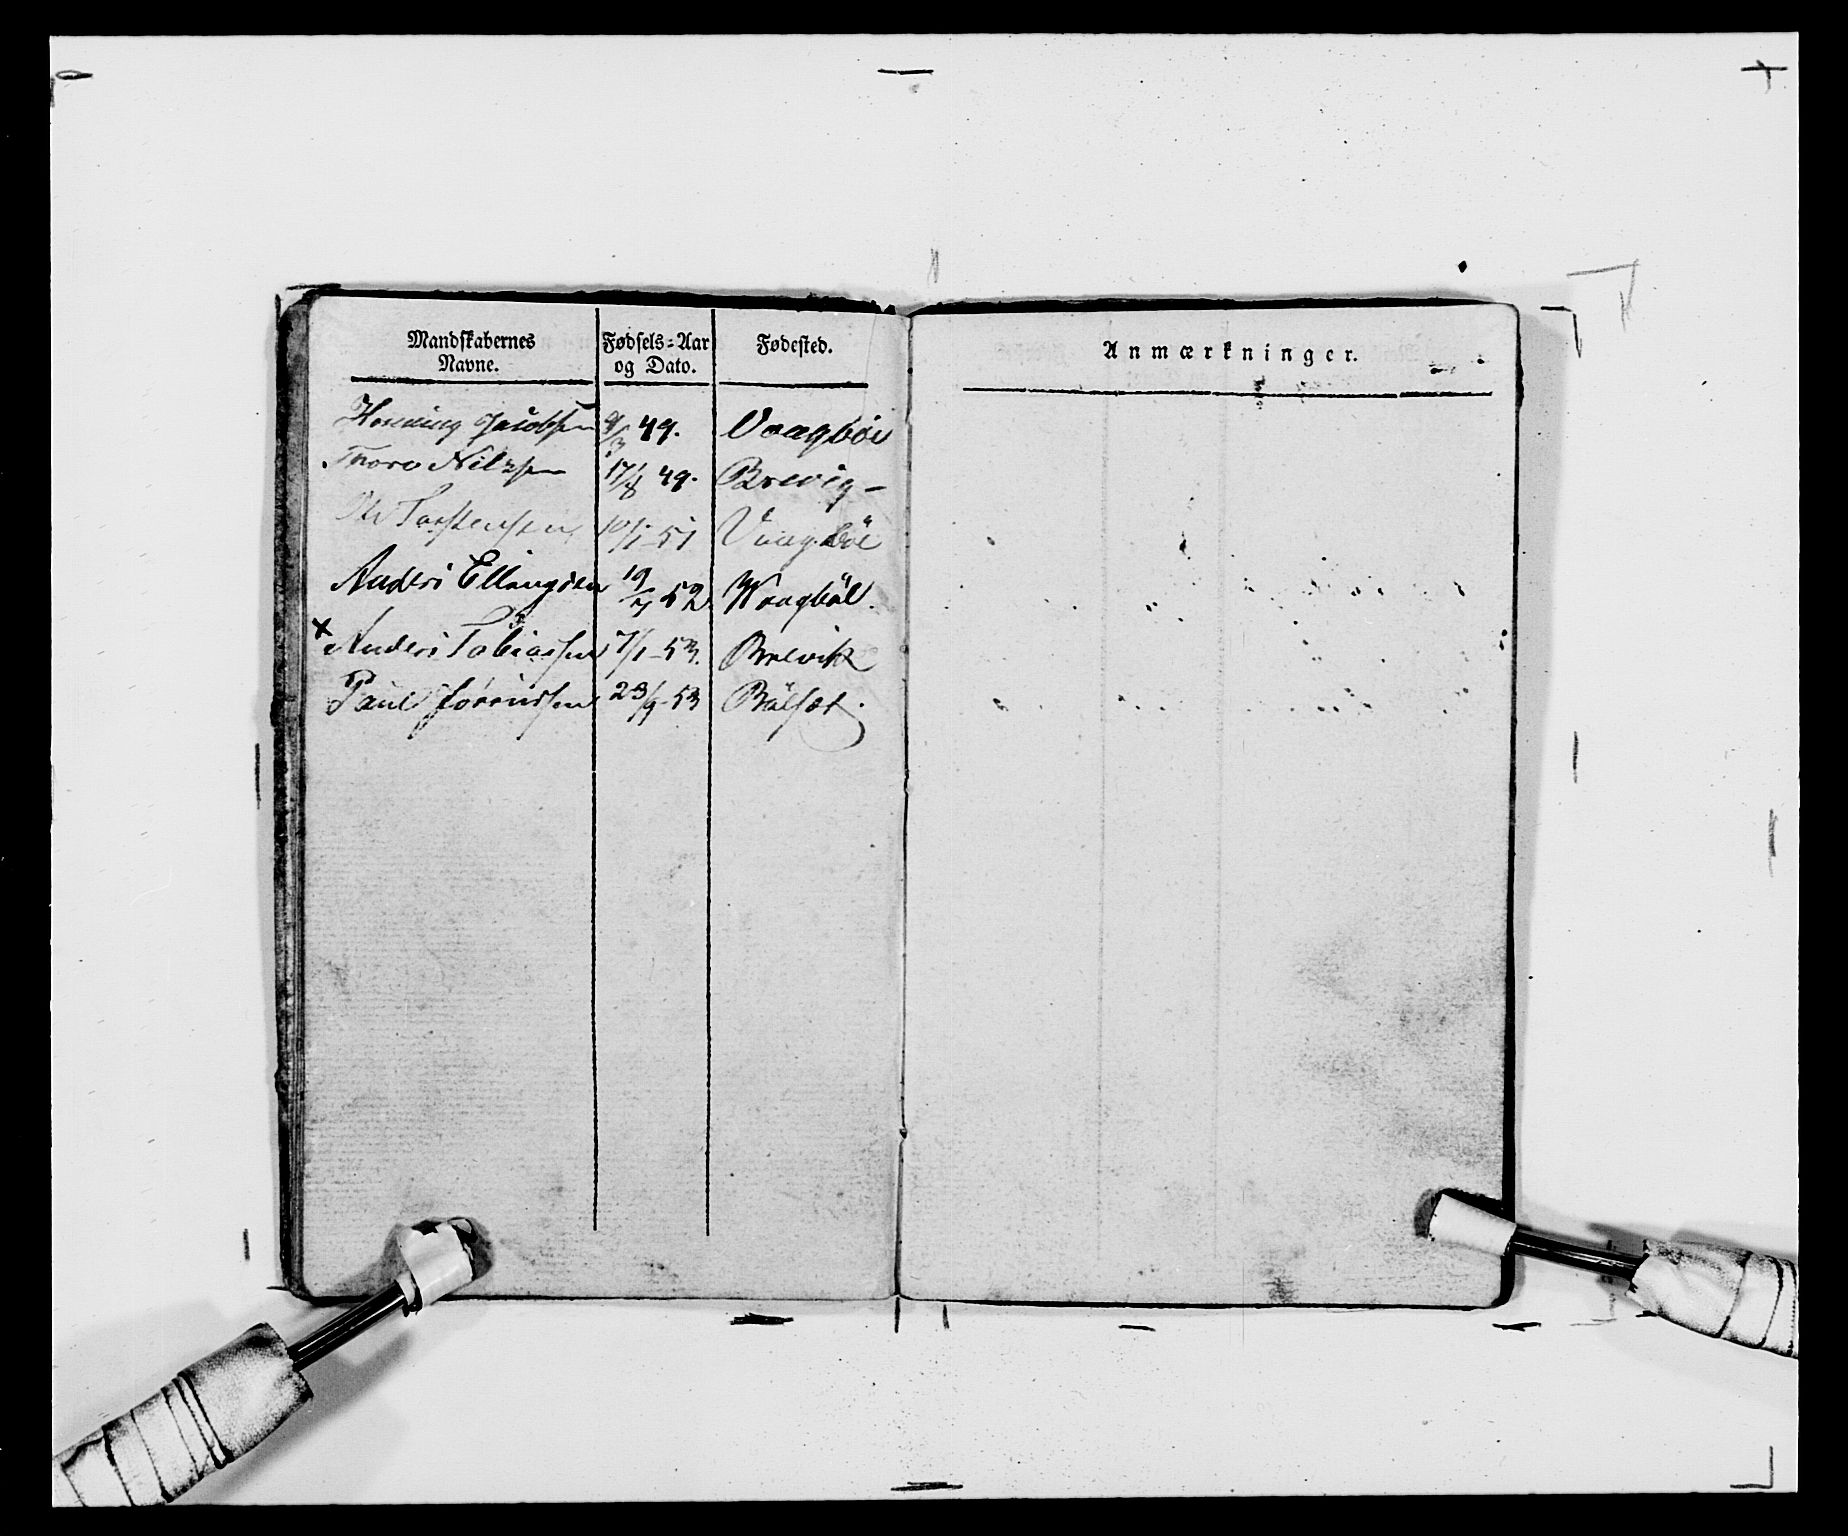 Mandskabernes Navne.
Fødsels-Aar og Dato.
Fødested.
Anmærkninger.
Henning Jacobsen 9/3 49. Vaagböe
Thore Nilssen 17/8 49. Brevig –
Ole Torstensen 10/1-51 Vaagböe
Anders Ellingsen 19/7 52 Waagböl.
x Anders Tobiassen 7/1-53. Brevik
Paul 23/9-53 Bölset.